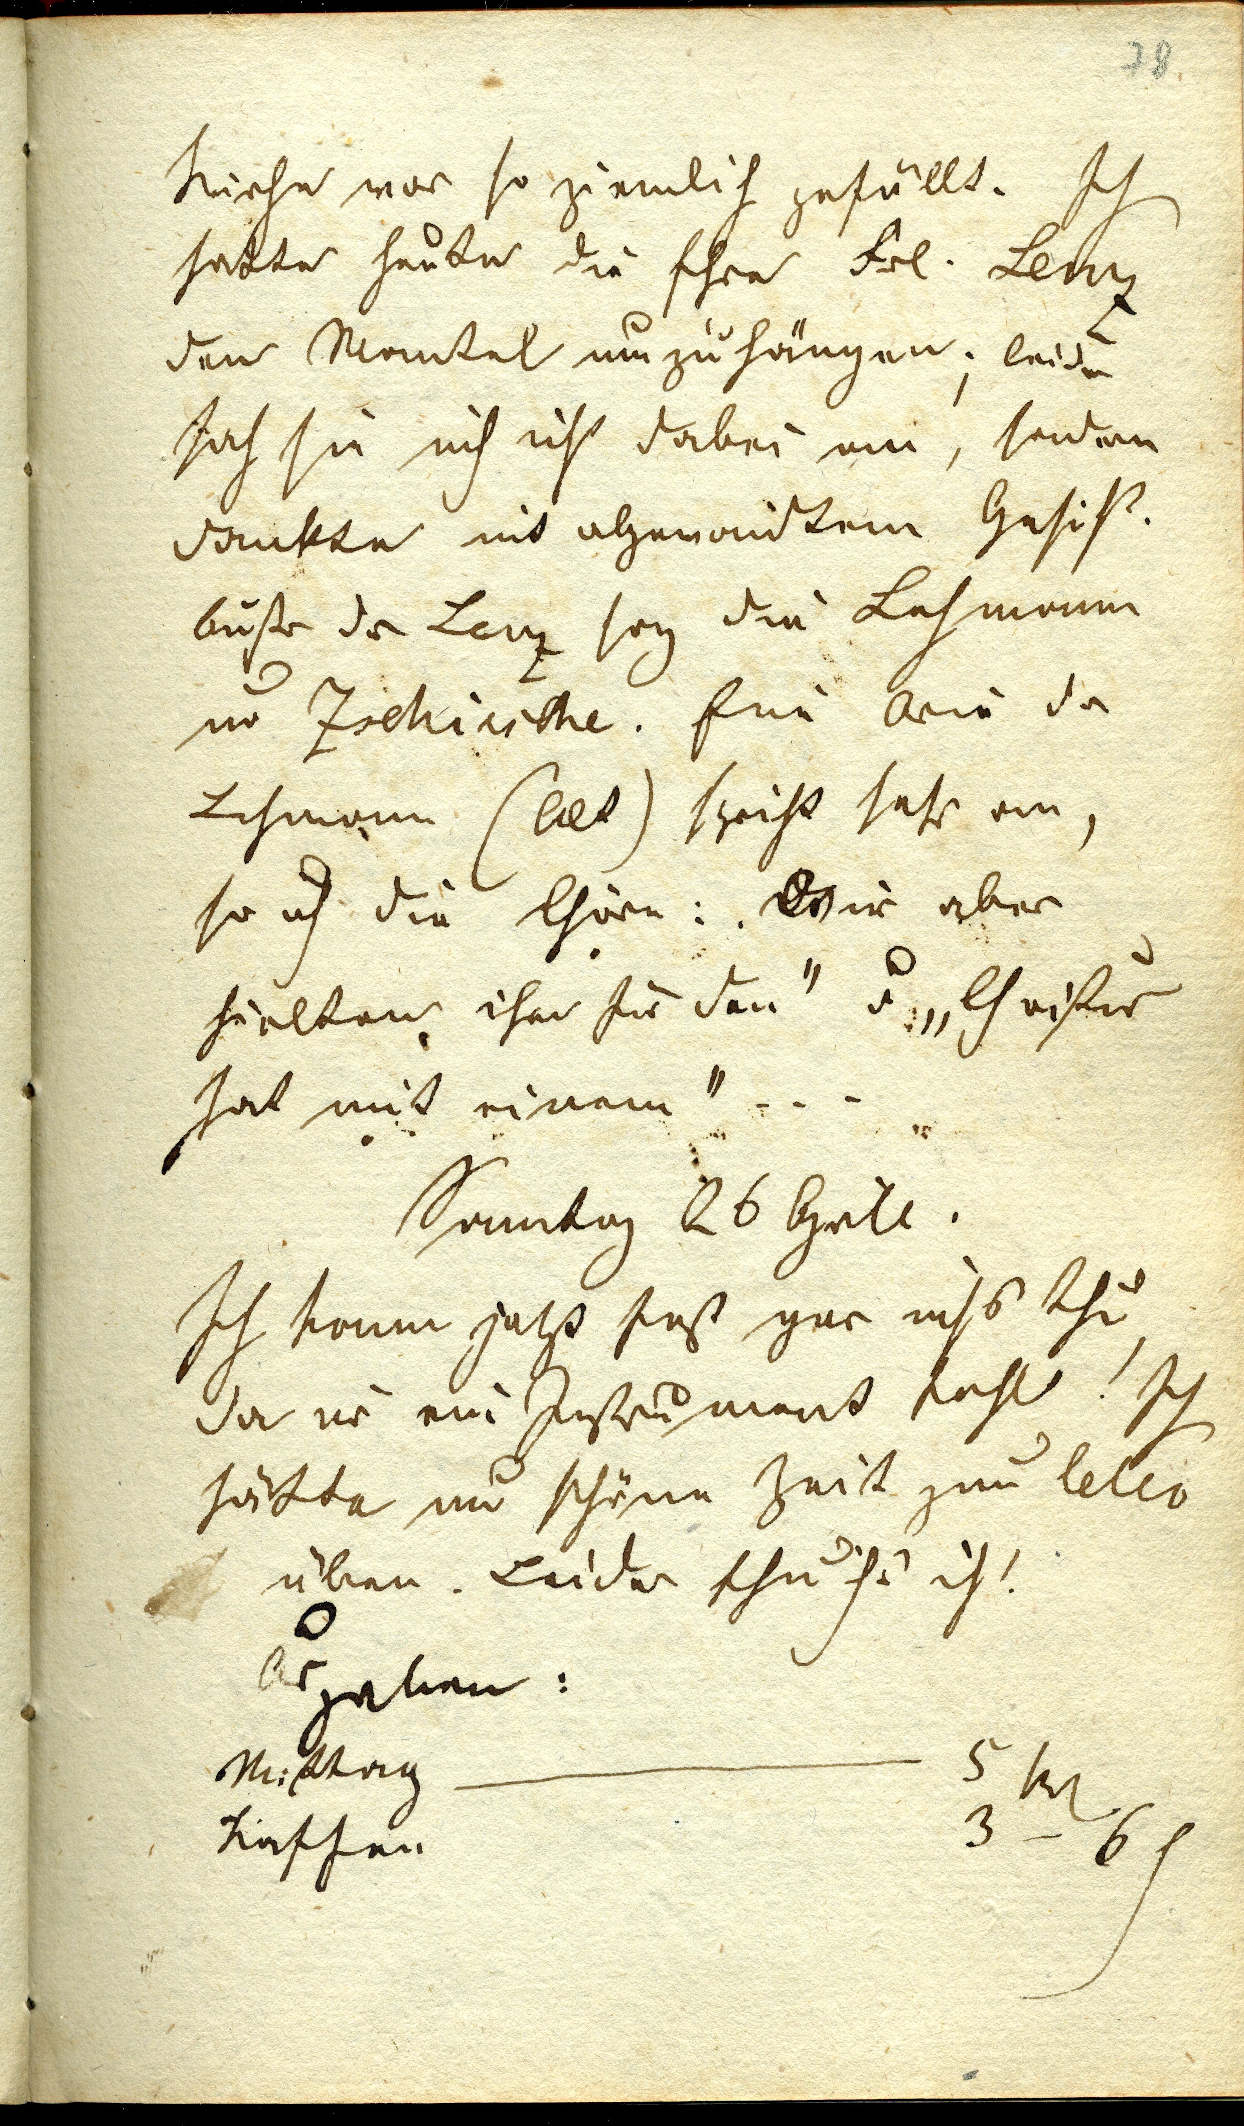 78.
Kirche war so ziemlich gefüllt. Ich
hatte heute die Ehre Frl. Lenz
den Mantel umzuhängen; leider
sah sie mich nicht dabei an, sondern
dankte mit abgewandtem Gesicht.
Außer der Lenz sang die Lehmann
und Zschirsche. Eine Arie der
Lehmann (Alt) spricht sehr an,
so auch die Chöre: „Wir aber
hielten ihn für den" u. „Christus
hat mit einem" - - -
Sonntag 26 April.
Ich kann jetzt fast gar nichts thun,
da mir ein Instrument fehlt! Ich
hätte nun schöne Zeit zum Cello
üben. Leider
Ausgaben:
Mittag — 5
Kaffee 3 – 6